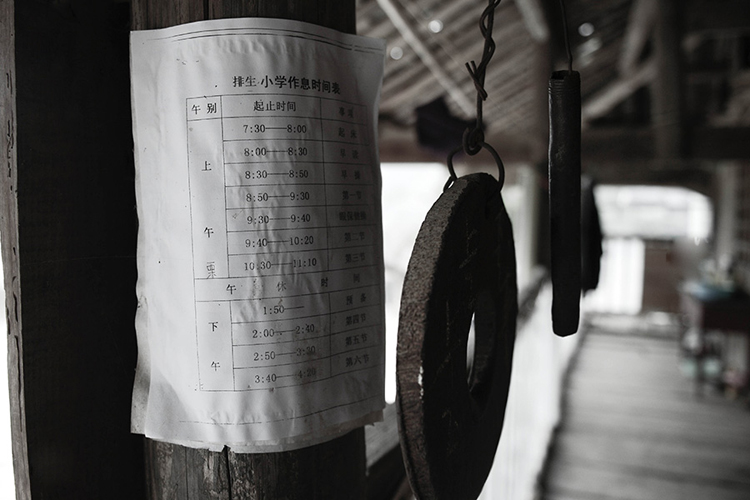 排生小学作息时间表
午别 起止时间
7:30——8:00 起床
8:00——8:30 早读
8:30——8:50 早操
8:50——9:30 第一节
9:30——9:40 眼保健操
9:40——10:20 第二节
10:30——11:10 第三节
上午
午 休 时 间
1:50—— 预备
2:00——2:40 第四节
2:50——3:30 第五节
3:40——4:20 第六节
下午